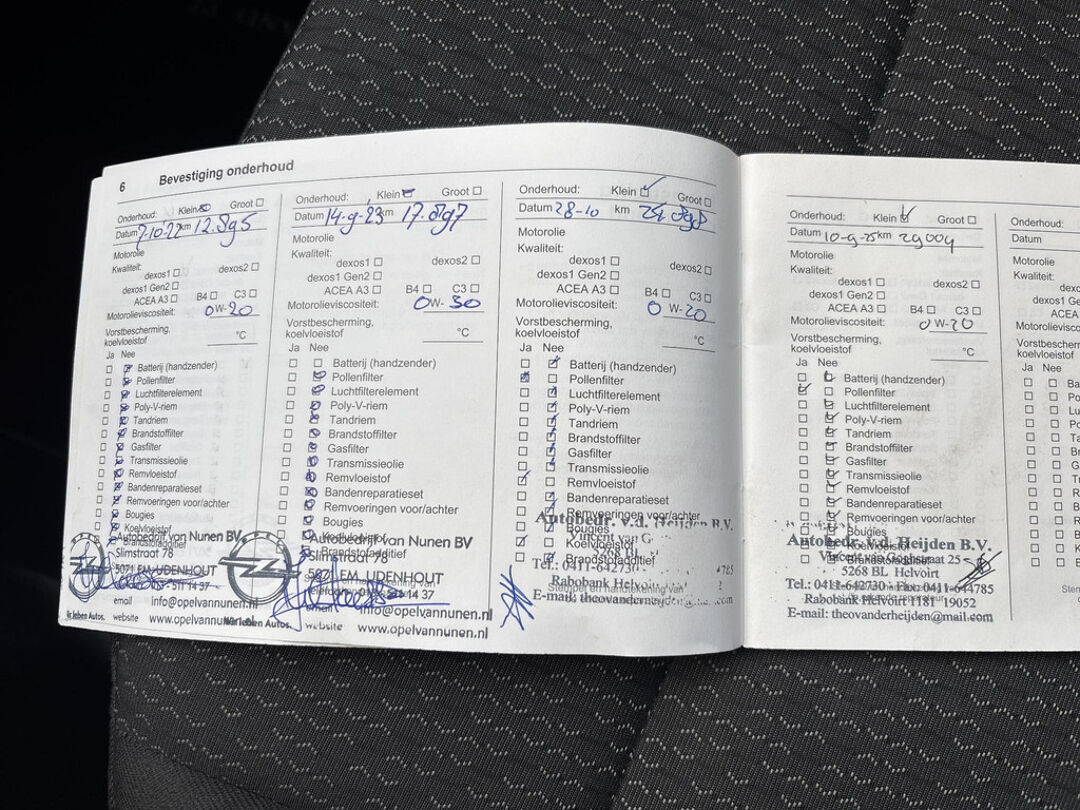 6 Bevestiging onderhoud
Onderhoud: Klein Groot
Datum 7-10-22 km 12.895
Motorolie
Kwaliteit:
dexos1 dexos2
dexos1 Gen2
ACEA A3 B4 C3
Motorolieviscositeit: 0W-20
Vorstbescherming,
koelvloeistof °C
Ja Nee
Batterij (handzender)
Pollenfilter
Luchtfilterelement
Poly-V-riem
Tandriem
Brandstoffilter
Gasfilter
Transmissieolie
Remvloeistof
Bandenreparatieset
Remvoeringen voor/achter
Bougies
Koelvloeistof
Brandstofadditief
Autobedrijf van Nunen BV
Slimstraat 78
5071 EM UDENHOUT
511 14 37
email info@opelvannunen.nl
website www.opelvannunen.nl
Wir leben Autos.
Onderhoud: Klein Groot
Datum 14-9-23 km 17.897
Motorolie
Kwaliteit:
dexos1 dexos2
dexos1 Gen2
ACEA A3 B4 C3
Motorolieviscositeit: 0W-30
Vorstbescherming,
koelvloeistof °C
Ja Nee
Batterij (handzender)
Pollenfilter
Luchtfilterelement
Poly-V-riem
Tandriem
Brandstoffilter
Gasfilter
Transmissieolie
Remvloeistof
Bandenreparatieset
Remvoeringen voor/achter
Bougies
Koelvloeistof
Brandstofadditief
Autobedrijf van Nunen BV
Slimstraat 78
5071 EM UDENHOUT
511 14 37
email info@opelvannunen.nl
website www.opelvannunen.nl
Wir leben Autos.
Onderhoud: Klein Groot
Datum 28-10 km
Motorolie
Kwaliteit:
dexos1 dexos2
dexos1 Gen2
ACEA A3 B4 C3
Motorolieviscositeit: 0W-20
Vorstbescherming,
koelvloeistof °C
Ja Nee
Batterij (handzender)
Pollenfilter
Luchtfilterelement
Poly-V-riem
Tandriem
Brandstoffilter
Gasfilter
Transmissieolie
Remvloeistof
Bandenreparatieset
Remvoeringen voor/achter
Bougies
Koelvloeistof
Brandstofadditief
Autobedr. v.d. Heijden B.V.
Vincent van G
5268 BL
Tel.: 0411-642730
Rabobank Helvoirt
Stempel en handtekening van
E-mail: theovanderheijden
Onderhoud: Klein Groot
Datum 10-9-25 km 29004
Motorolie
Kwaliteit:
dexos1 dexos2
dexos1 Gen2
ACEA A3 B4 C3
Motorolieviscositeit: 0W-20
Vorstbescherming,
koelvloeistof °C
Ja Nee
Batterij (handzender)
Pollenfilter
Luchtfilterelement
Poly-V-riem
Tandriem
Brandstoffilter
Gasfilter
Transmissieolie
Remvloeistof
Bandenreparatieset
Remvoeringen voor/achter
Bougies
Koelvloeistof
Brandstofadditief
Autobedr. v.d. Heijden B.V.
Vincent van Goghstraat 25
5268 BL Helvoirt
Tel.: 0411-642730 - Fax: 0411-644785
Rabobank Helvoirt 1181 19052
E-mail: theovanderheijden@mail.com
Onderhoud:
Datum
Motorolie
Kwaliteit:
ACEA
Motorolieviscositeit
Vorstbescherming
koelvloeistof
Ja Nee